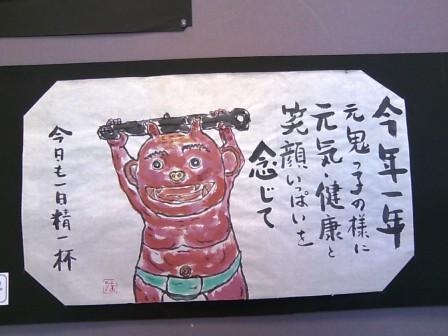 今年一年
元鬼っ子の様に
元気・健康と
笑顔いっぱいを
念じて
今日も一日精一杯